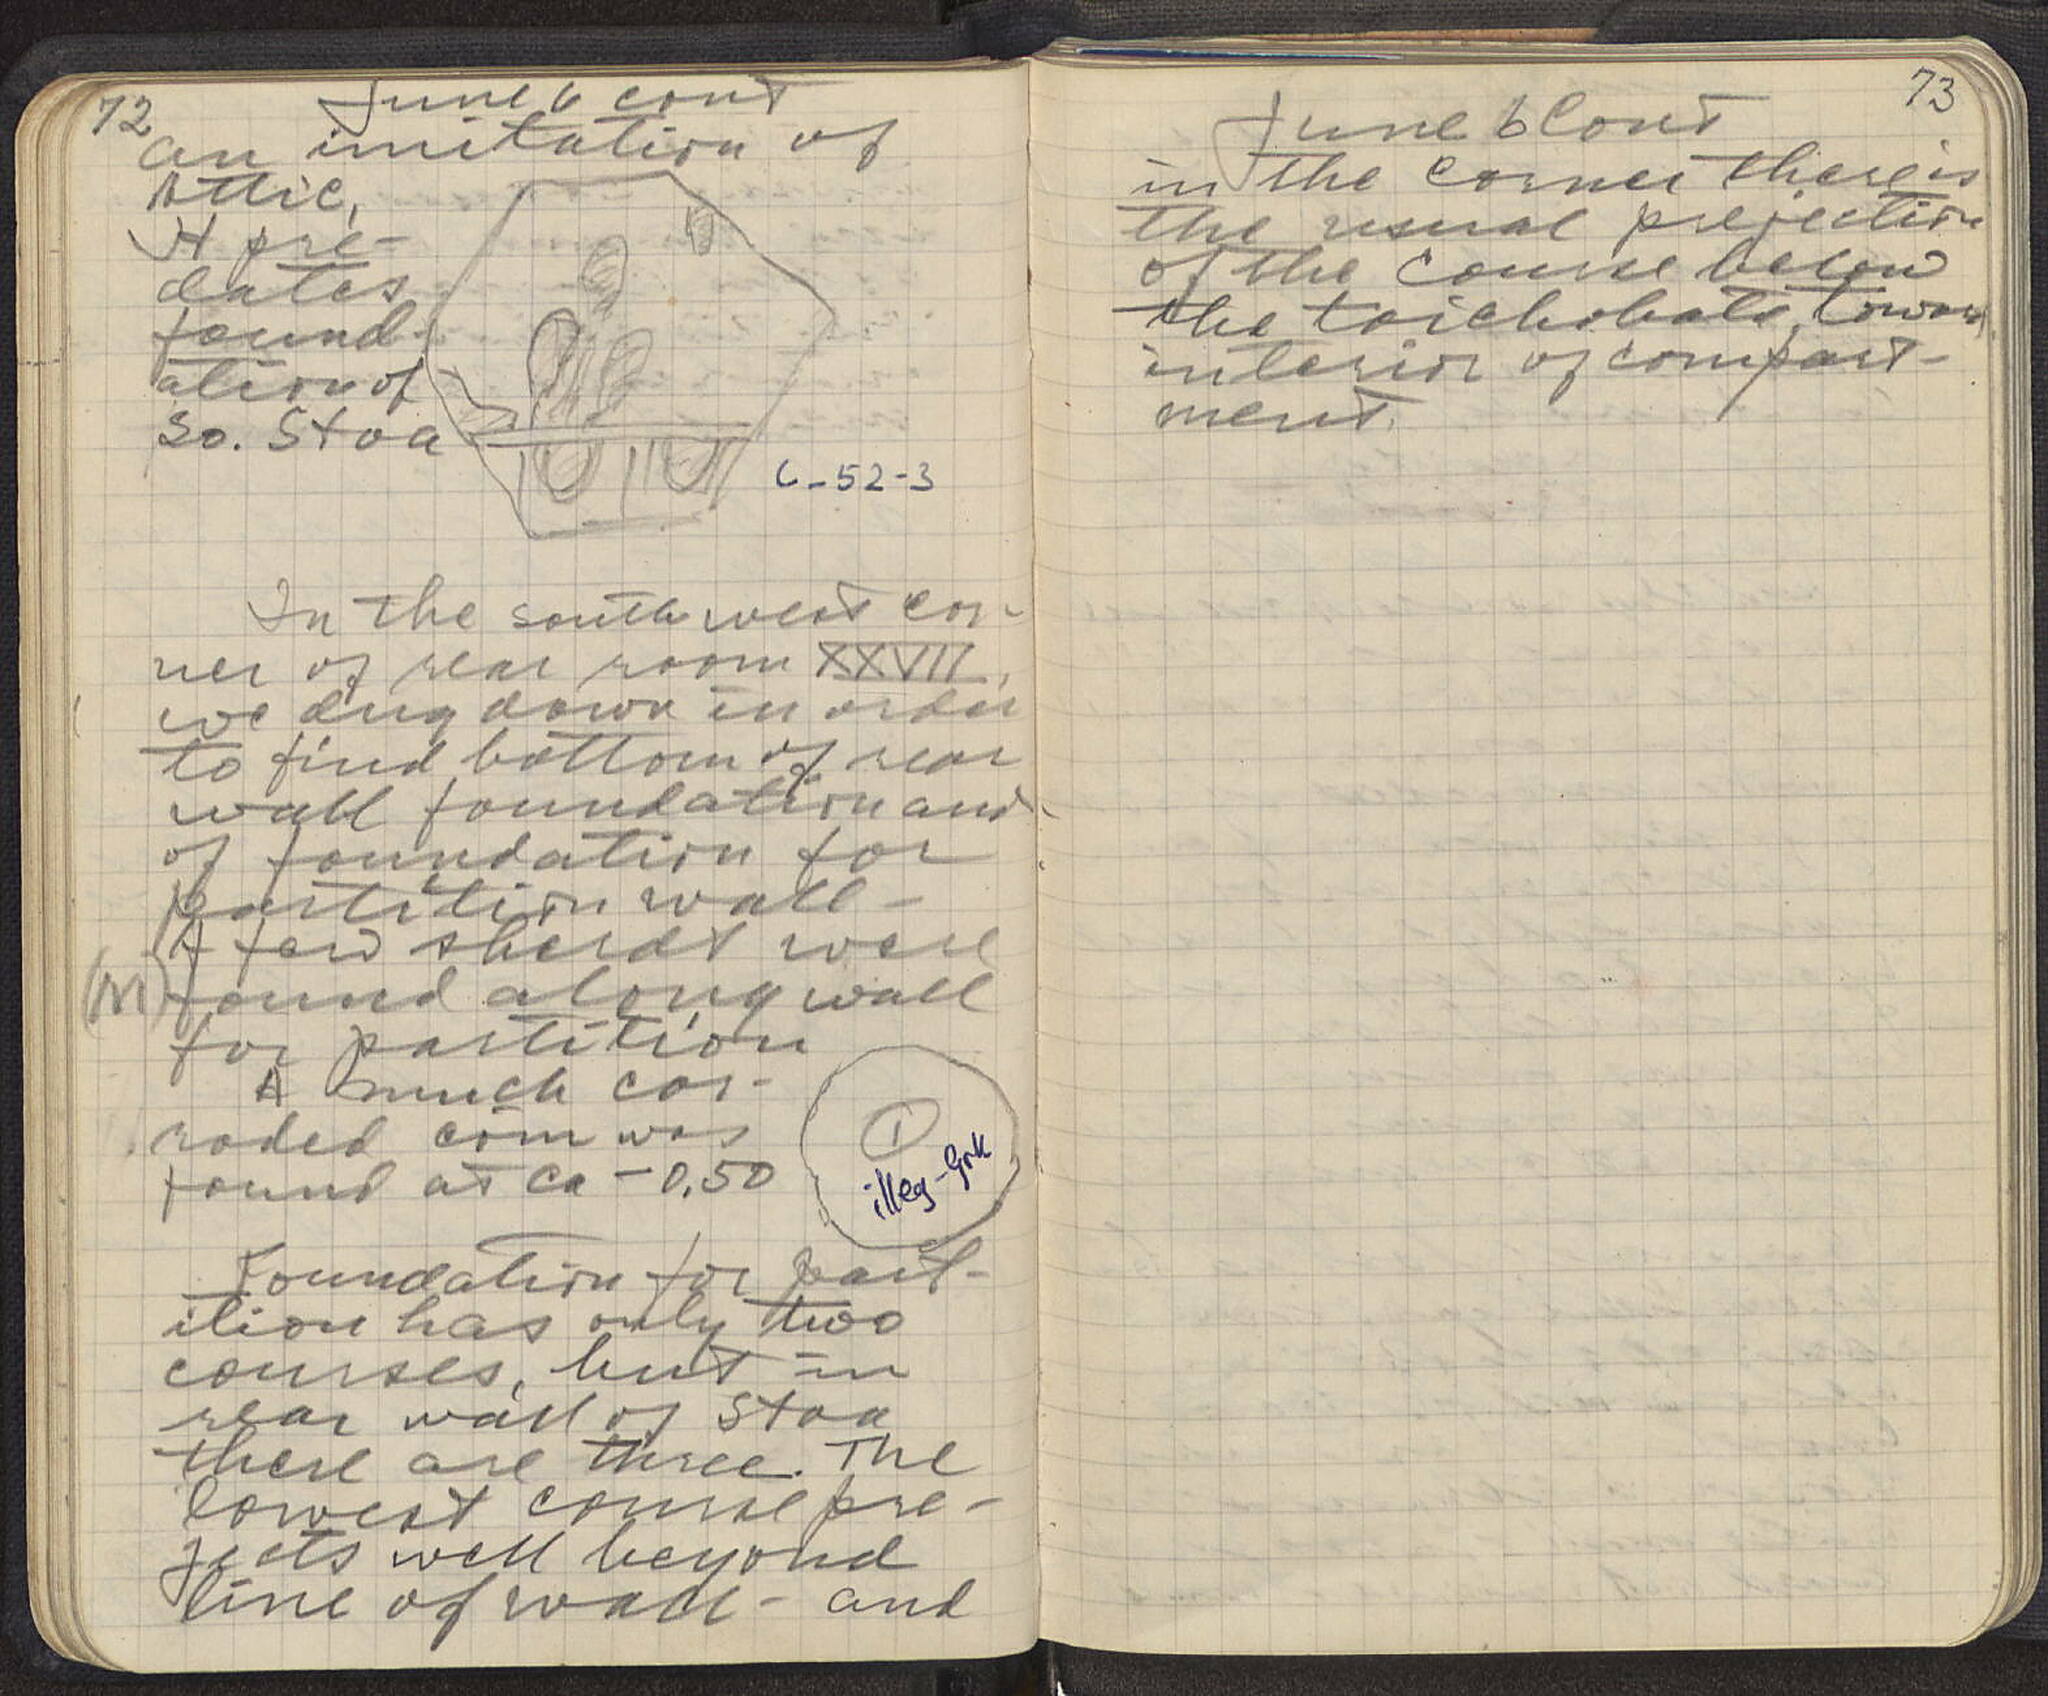 72
June 6 cont
an imitation of
Attic,
It pre-
dates
found-
ation of
So. Stoa
C-52-3
In the southwest cor-
ner of rear room XXVII,
we dug down in order
to find bottom of rear
wall foundation and
of foundation for
partition wall -
A few sherds were
(M) found along wall
for partition
A much cor-
roded coin was
found at ca -0.50
1
illeg-Grk
Foundation for part-
ition has only two
courses, but in
rear wall of Stoa
there are three. The
lowest course pro-
jects well beyond
line of wall - and
73
June 6 Cont
in the corner there is
the usual projection
of the course below
the toichobate, toward
interior of compart-
ment.